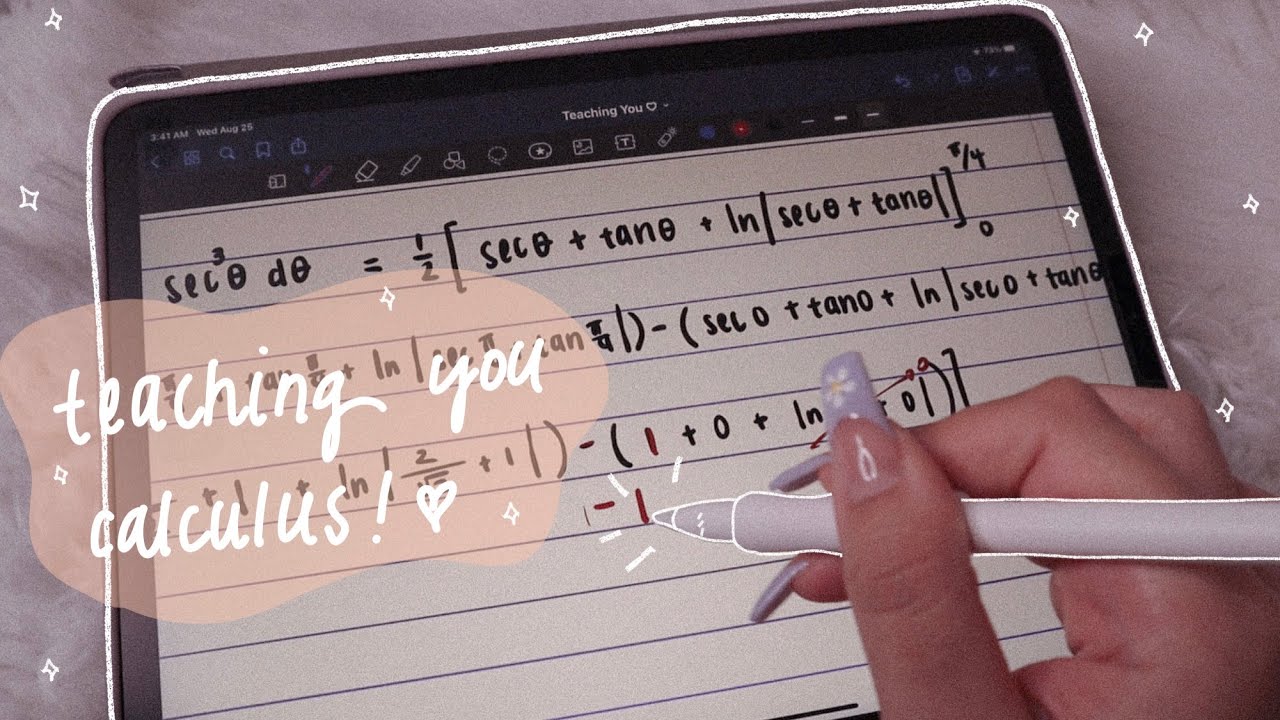 3:41 AM Wed Aug 25
73%
Teaching You ♡
sec³θ dθ = 1/2 [ secθ + tanθ + ln|secθ + tanθ| ]₀^π/4
π/4 + tan π/4 + ln |sec π/4 + tan π/4|) - (sec0 + tan0 + ln |sec0 + tan0
+ 1 + ln |2/√2 + 1|) - (1 + 0 + ln + 0|)]
- 1
teaching you
calculus! ♡